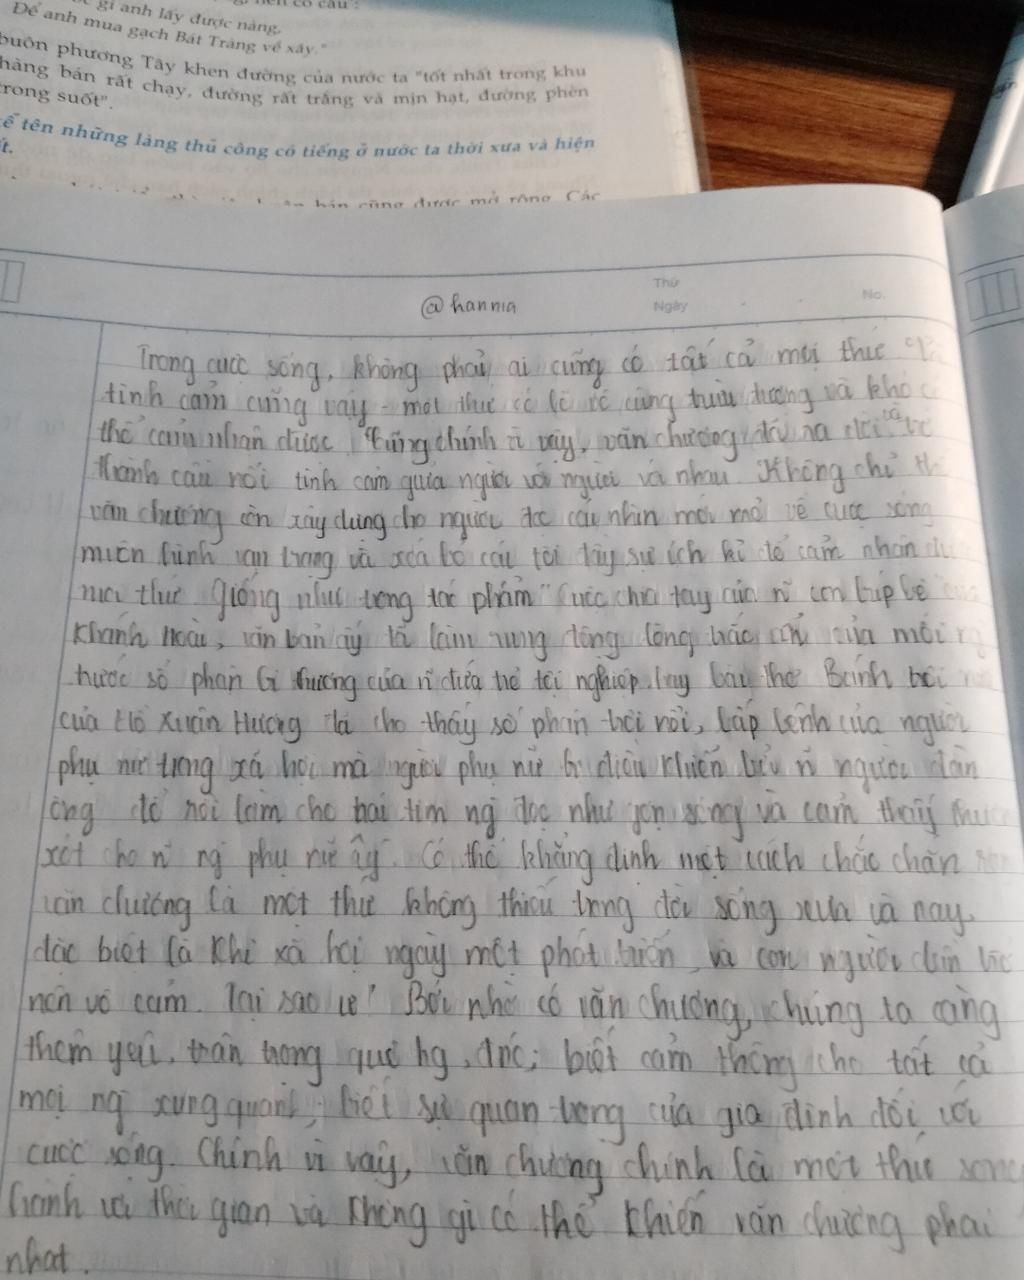 gì anh lấy được nàng,
Để anh mua gạch Bát Tràng về xây."
buôn phương Tây khen đường của nước ta "tốt nhất trong khu
hàng bán rất chạy, đường rất trắng và mịn hạt, đường phèn
trong suốt".
kể tên những làng thủ công có tiếng ở nước ta thời xưa và hiện
bán cũng được mở rộng. Các
@hannia
Thứ
Ngày
No.
Trong cuộc sống, không phải ai cũng có tất cả mọi thứ
tình cảm cũng vậy - một thứ có lẽ vô cùng trừu tượng và khó
thể cảm nhận được. Cũng chính vì vậy, văn chương ra đời
thành cầu nối tình cảm giữa người với người và nhau. Không chỉ thế
văn chương còn xây dựng cho người đọc cái nhìn mới mẻ về cuộc sống
muôn hình vạn trạng và xóa bỏ cái tôi đầy sự ích kỉ để cảm nhận
mọi thứ. Giống như trong tác phẩm "Cuộc chia tay của n~ con búp bê
Khánh Hoài, văn bản ấy đã làm rung động lòng trắc ẩn của mỗi
trước số phận bi thương của n~ đứa trẻ tội nghiệp. Hay bài thơ Bánh trôi
của Hồ Xuân Hương đã cho thấy số phận trôi nổi, bấp bênh của người
phụ nữ trong xã hội mà người phụ nữ bị điều khiển bởi n~ người đàn
ông để rồi làm cho trái tim ng đọc như gợn sóng và cảm thấy
xót cho n~ ng phụ nữ ấy. Có thể khẳng định một cách chắc chắn
văn chương là một thứ không thiếu trong đời sống xưa và nay,
đặc biệt là khi xã hội ngày một phát triển, và con người dần trở
nên vô cảm. Tại sao ư? Bởi nhờ có văn chương, chúng ta càng
thêm yêu, trân trọng quê hg, đnc; biết cảm thông cho tất cả
mọi ng xung quanh; biết sự quan trọng của gia đình đối với
cuộc sống. Chính vì vậy, văn chương chính là một thứ song
hành với thời gian và không gì có thể khiến văn chương phai
nhạt.